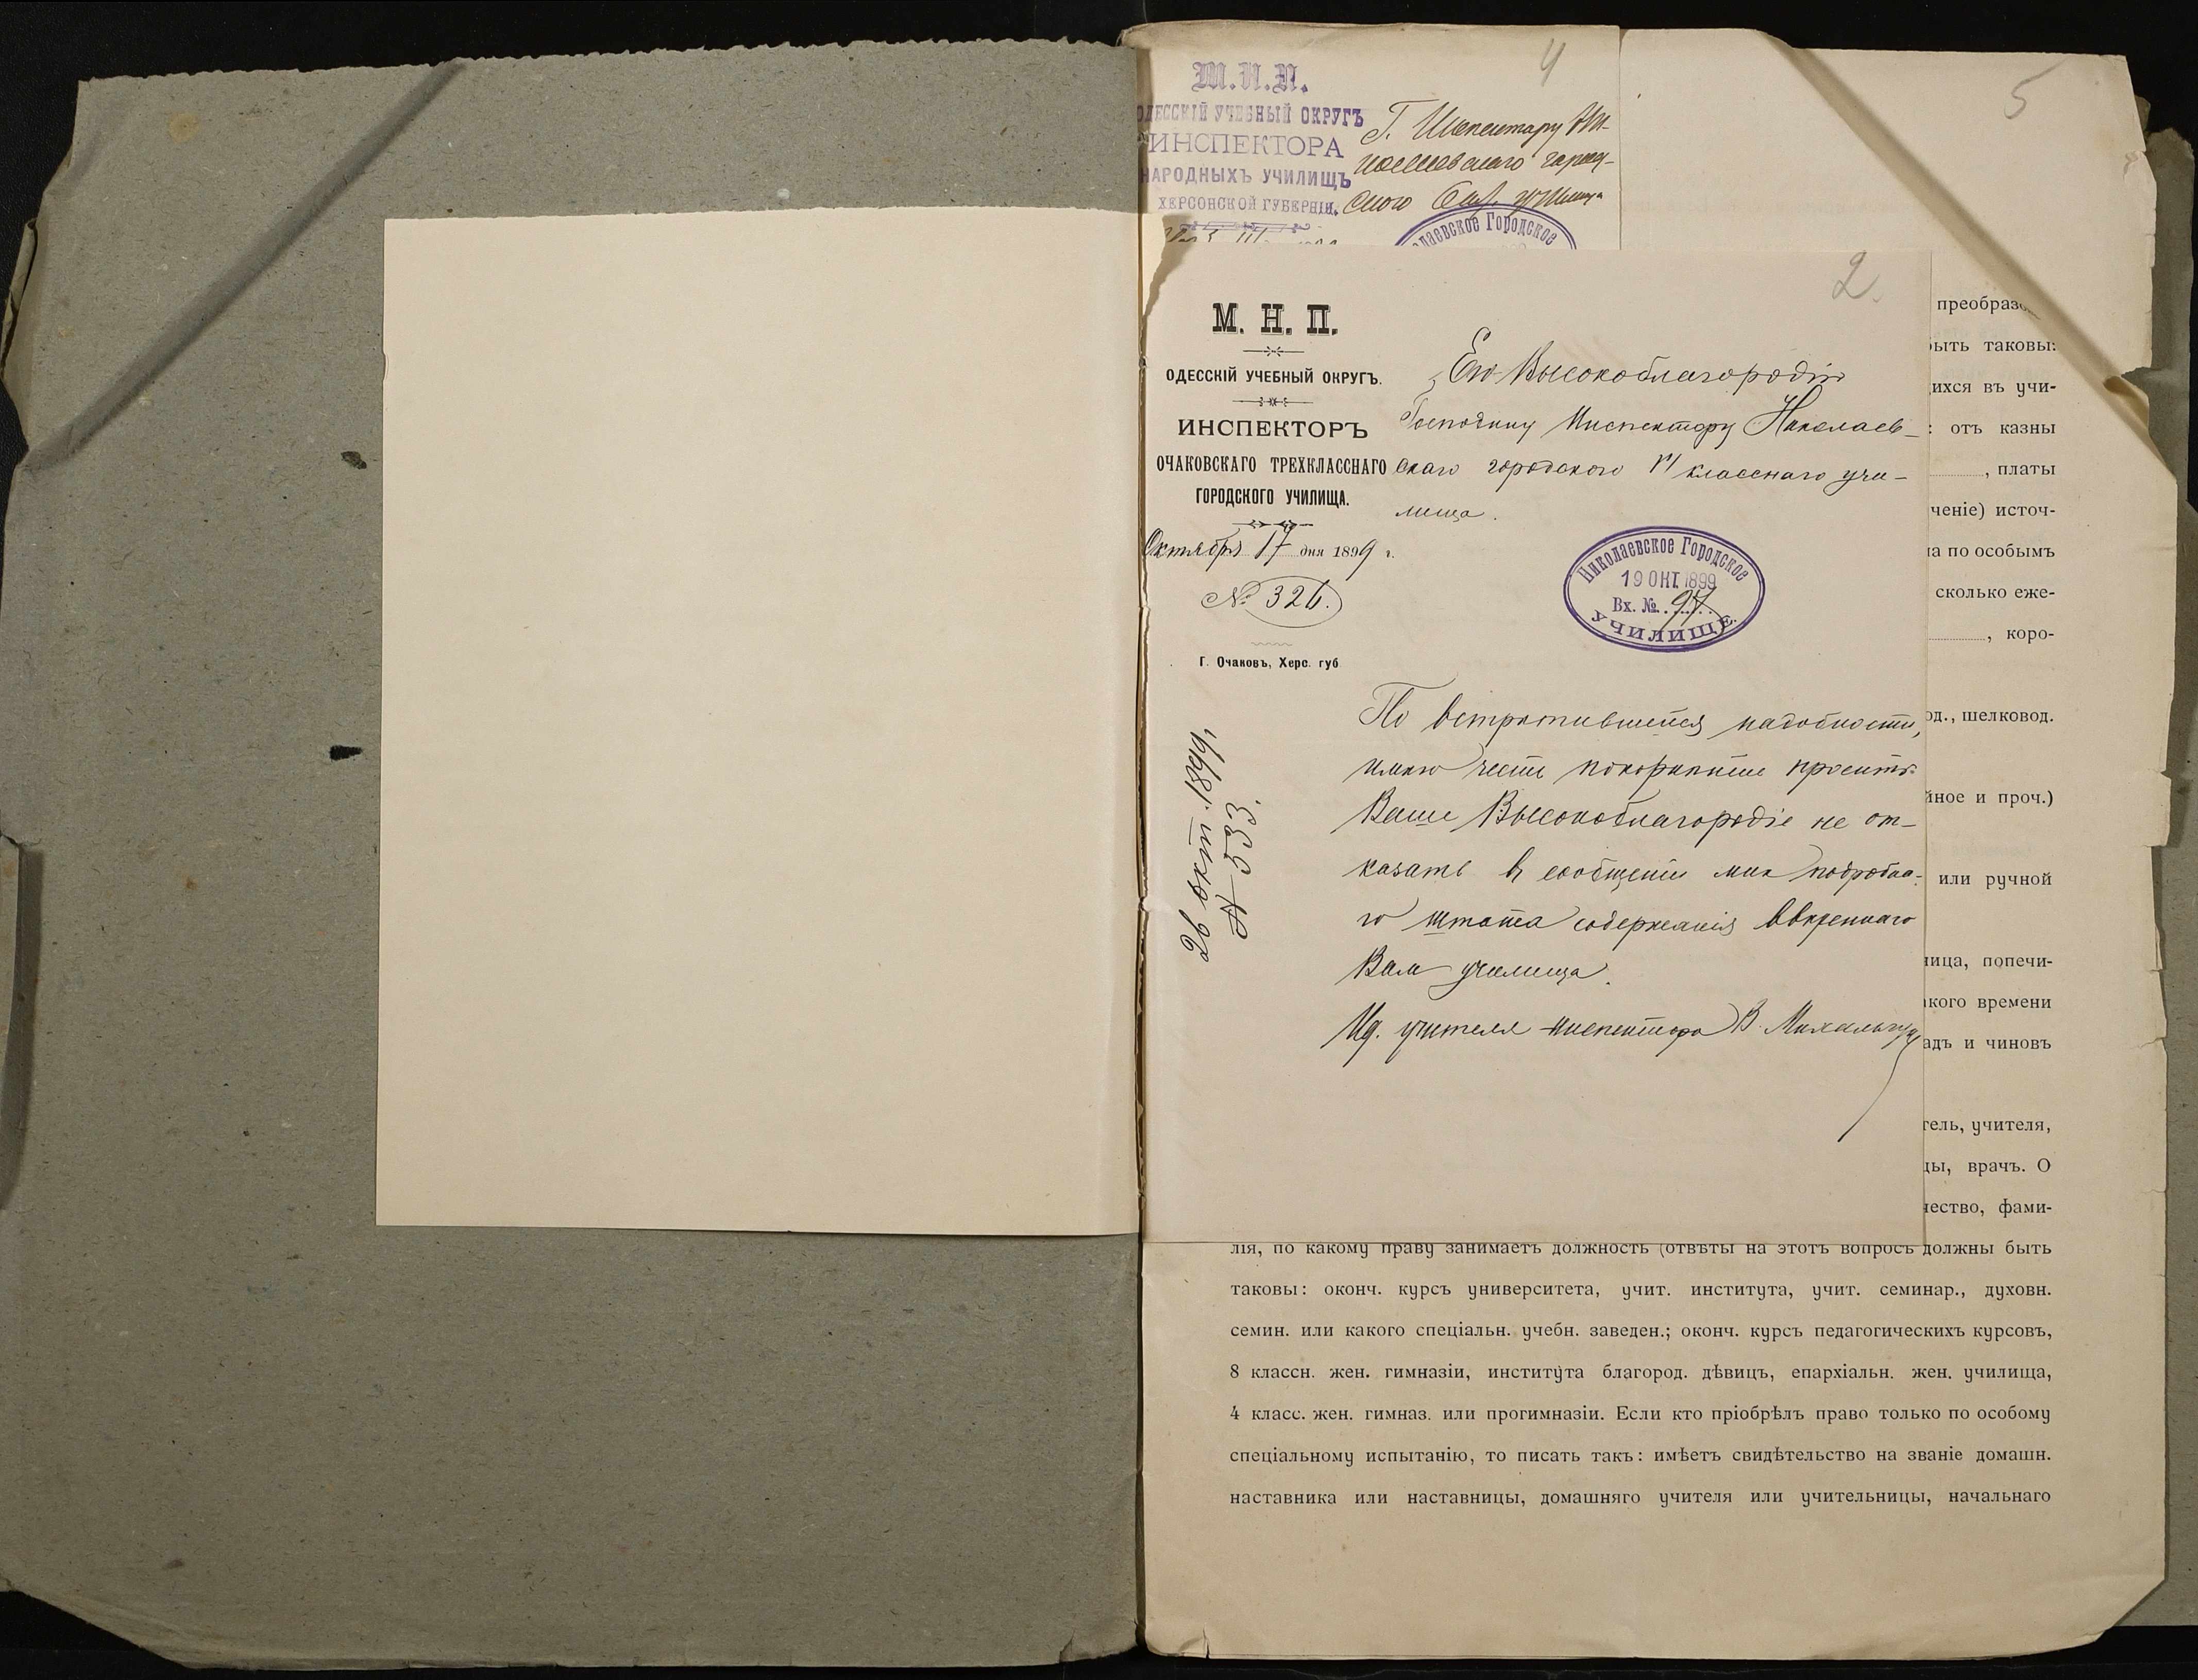 4
5
М. Н. П.
ОДЕССКІЙ УЧЕБНЫЙ ОКРУГЪ
ИНСПЕКТОРА
НАРОДНЫХЪ УЧИЛИЩЪ
ХЕРСОНСКОЙ ГУБЕРНІИ.
Г. Инспектору Ни-
колаевскаго город-
ского училища
Николаевское Городское
2.
М. Н. П.
ОДЕССКІЙ УЧЕБНЫЙ ОКРУГЪ.
ИНСПЕКТОРЪ
ОЧАКОВСКАГО ТРЕХКЛАССНАГО
ГОРОДСКОГО УЧИЛИЩА.
Октября 17 дня 1899 г.
№ 326.
Г. Очаковъ, Херс. губ
26 окт. 1899,
№ 533.
Его Высокоблагородію
Господину Инспектору Николаев-
скаго городского класснаго учи-
лища.
Николаевское Городское
19 ОКТ. 1899
Вх. №. 97
УЧИЛИЩЕ.
По встрѣтившейся надобности,
имѣю честь покорнѣйше просить
Ваше Высокоблагородіе не от-
казать въ сообщеніи мнѣ подробна-
го штата содержанія ввѣреннаго
Вам училища.
Ид. учителя-инспектора В.
преобраз
быть таковы:
ихся въ учи-
: отъ казны
, платы
ченіе) источ-
на по особымъ
сколько еже-
, коро-
од., шелковод.
йное и проч.)
или ручной
ница, попечи-
акого времени
адъ и чиновъ
тель, учителя,
цы, врачъ. О
чество, фами-
лія, по какому праву занимаетъ должность (отвѣты на этотъ вопросъ должны быть
таковы: оконч. курсъ университета, учит. института, учит. семинар., духовн.
семин. или какого спеціальн. учебн. заведен.; оконч. курсъ педагогическихъ курсовъ,
8 классн. жен. гимназіи, института благород. дѣвицъ, епархіальн. жен. училища,
4 класс. жен. гимназ. или прогимназіи. Если кто пріобрѣлъ право только по особому
спеціальному испытанію, то писать такъ: имѣетъ свидѣтельство на званіе домашн.
наставника или наставницы, домашняго учителя или учительницы, начальнаго